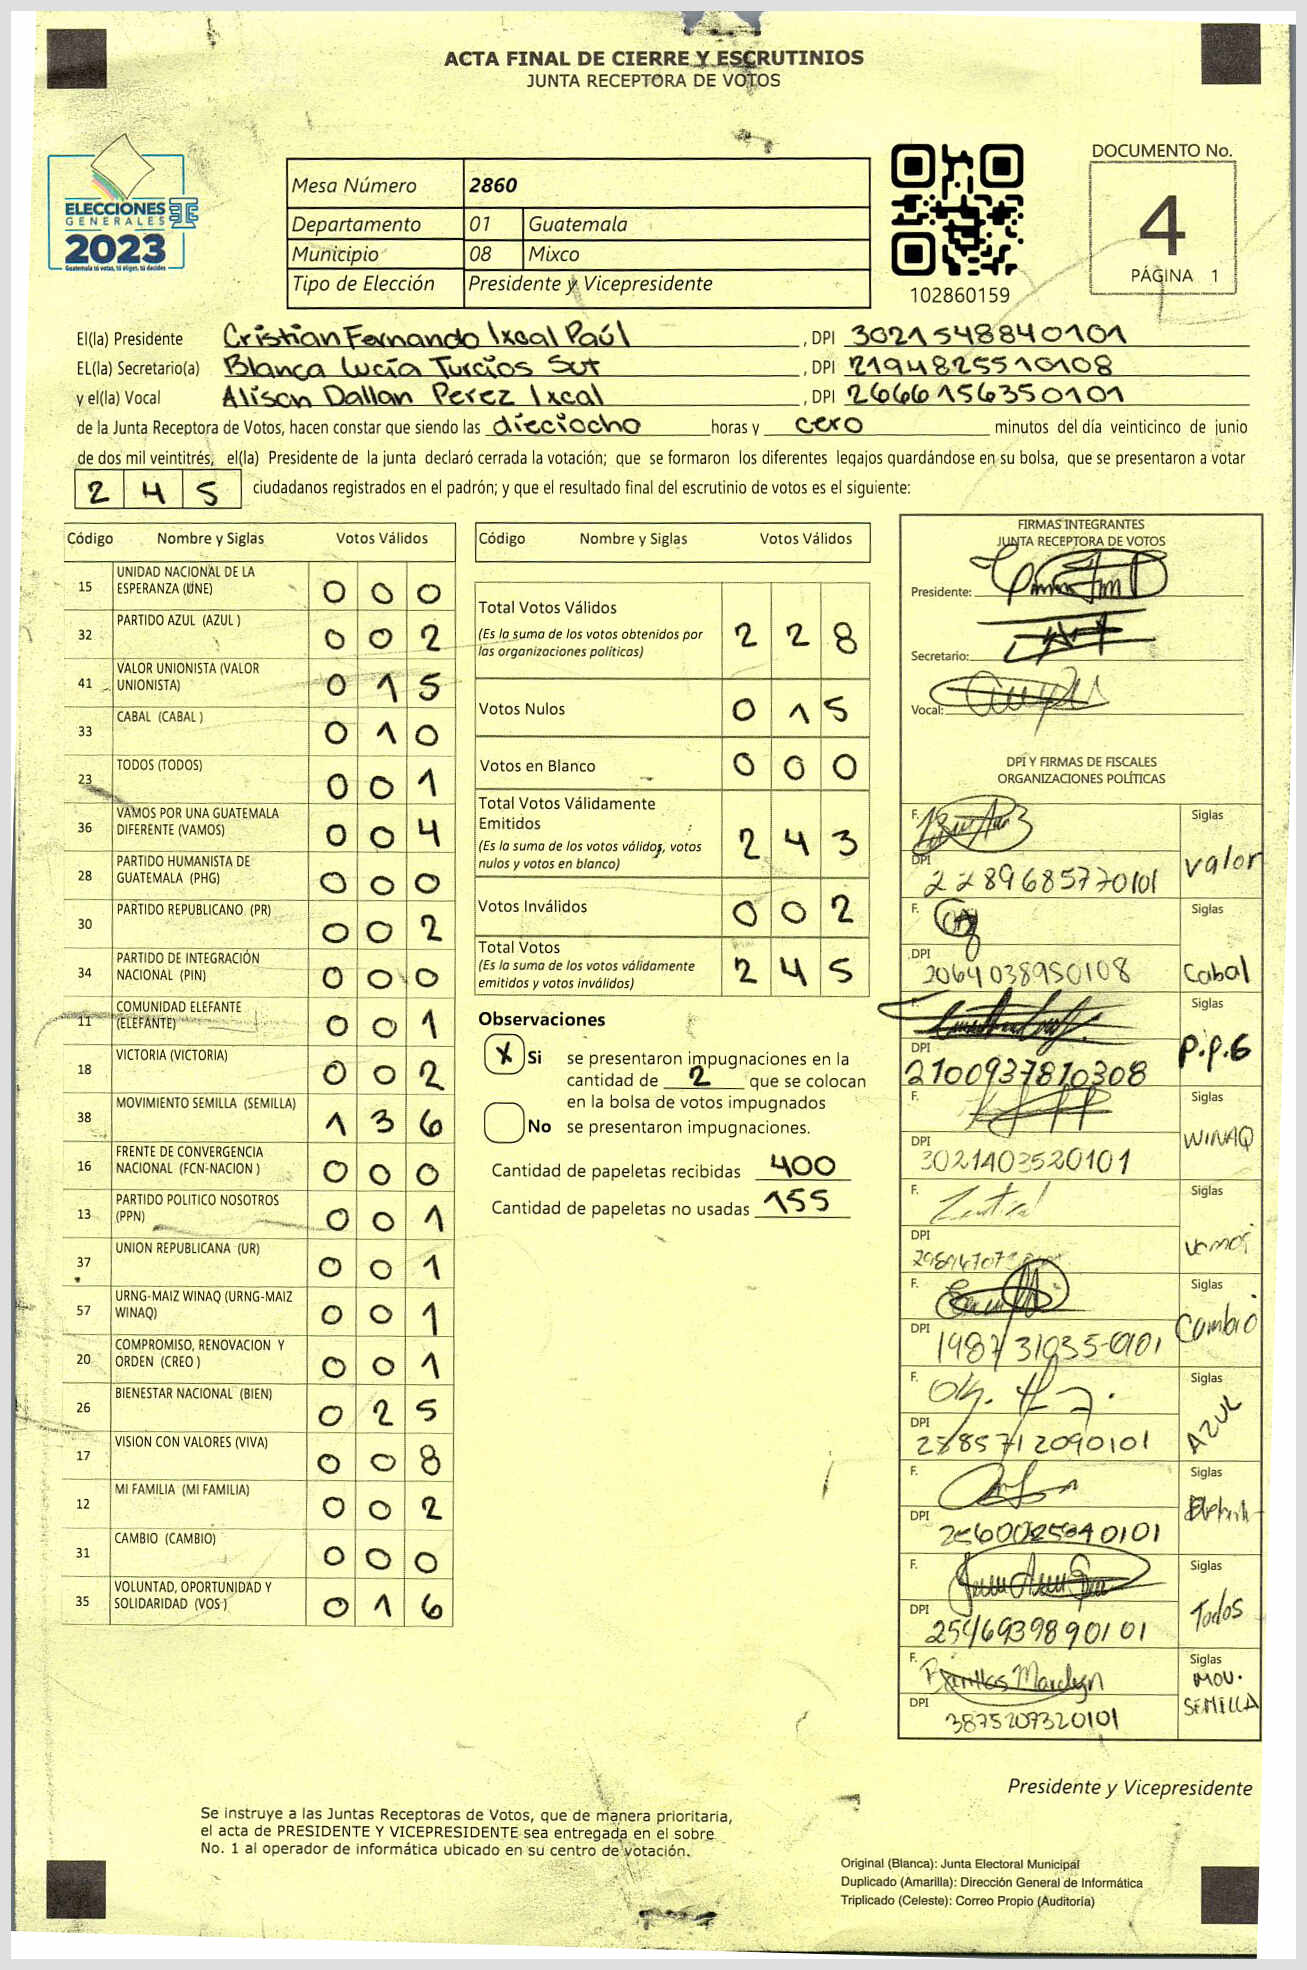 ACTA FINAL DE CIERRE Y ESCRUTINIOS
JUNTA RECEPTORA DE VOTOS
ELECCIONES
GENERALES
2023
Guatemala tú votas, tú eliges, tú decides
Mesa Número 2860
Departamento 01 Guatemala
Municipio 08 Mixco
Tipo de Elección Presidente y Vicepresidente
102860159
DOCUMENTO No.
4
PÁGINA 1
El(la) Presidente Cristian Fernando Ixcal Paúl, DPI 3021548840101
EL(la) Secretario(a) Blanca Lucía Turcios Sut, DPI 2194825510108
y el(la) Vocal Alison Dallan Perez Ixcal, DPI 2666156350101
de la Junta Receptora de Votos, hacen constar que siendo las dieciocho horas y cero minutos del día veinticinco de junio
de dos mil veintitrés, el(la) Presidente de la junta declaró cerrada la votación; que se formaron los diferentes legajos quardándose en su bolsa, que se presentaron a votar
245 ciudadanos registrados en el padrón; y que el resultado final del escrutinio de votos es el siguiente:
Código Nombre y Siglas Votos Válidos
15 UNIDAD NACIONAL DE LA
ESPERANZA (UNE) 000
32 PARTIDO AZUL (AZUL ) 002
41 VALOR UNIONISTA (VALOR
UNIONISTA) 015
33 CABAL (CABAL ) 010
23 TODOS (TODOS) 001
36 VAMOS POR UNA GUATEMALA
DIFERENTE (VAMOS) 004
28 PARTIDO HUMANISTA DE
GUATEMALA (PHG) 000
30 PARTIDO REPUBLICANO (PR) 002
34 PARTIDO DE INTEGRACIÓN
NACIONAL (PIN) 000
11 COMUNIDAD ELEFANTE
(ELEFANTE) 001
18 VICTORIA (VICTORIA) 002
38 MOVIMIENTO SEMILLA (SEMILLA) 136
16 FRENTE DE CONVERGENCIA
NACIONAL (FCN-NACION ) 000
13 PARTIDO POLITICO NOSOTROS
(PPN) 001
37 UNION REPUBLICANA (UR) 001
57 URNG-MAIZ WINAQ (URNG-MAIZ
WINAQ) 001
20 COMPROMISO, RENOVACION Y
ORDEN (CREO ) 001
26 BIENESTAR NACIONAL (BIEN) 025
17 VISION CON VALORES (VIVA) 008
12 MI FAMILIA (MI FAMILIA) 002
31 CAMBIO (CAMBIO) 000
35 VOLUNTAD, OPORTUNIDAD Y
SOLIDARIDAD (VOS ) 016
Código Nombre y Siglas Votos Válidos
Total Votos Válidos
(Es la suma de los votos obtenidos por
las organizaciones políticas) 228
Votos Nulos 015
Votos en Blanco 000
Total Votos Válidamente
Emitidos
(Es la suma de los votos válidos, votos
nulos y votos en blanco) 243
Votos Inválidos 002
Total Votos
(Es la suma de los votos válidamente
emitidos y votos inválidos) 245
Observaciones
X Si se presentaron impugnaciones en la
cantidad de 2 que se colocan
en la bolsa de votos impugnados
No se presentaron impugnaciones.
Cantidad de papeletas recibidas 400
Cantidad de papeletas no usadas 155
FIRMAS INTEGRANTES
JUNTA RECEPTORA DE VOTOS
Presidente:
Secretario:
Vocal:
DPI Y FIRMAS DE FISCALES
ORGANIZACIONES POLÍTICAS
F. Siglas
DPI 2289685770101 Valor
F. Siglas
DPI 2064038950108 Cabal
F. Siglas
DPI 2100937810308 P.P.G
F. Siglas
DPI 3021403520101 WINAQ
F. Siglas
DPI Vamos
F. Siglas
DPI Cambio
F. Siglas
DPI 2585712090101 AZUL
F. Siglas
DPI
F. Siglas
DPI 2546939890101 Todos
F. Siglas
DPI 3875209320101 MOV.
SEMILLA
Presidente y Vicepresidente
Se instruye a las Juntas Receptoras de Votos, que de manera prioritaria,
el acta de PRESIDENTE Y VICEPRESIDENTE sea entregada en el sobre
No. 1 al operador de informática ubicado en su centro de votación.
Original (Blanca): Junta Electoral Municipal
Duplicado (Amarilla): Dirección General de Informática
Triplicado (Celeste): Correo Propio (Auditoría)